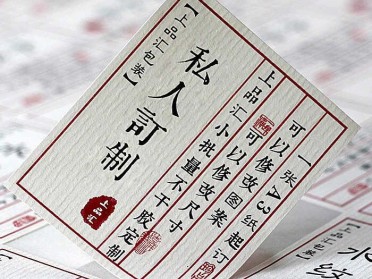 一张A3纸起订
可以修改图案
可以修改尺寸
上品汇小批量不干胶定制
私人訂制
【上品汇包装】
上品汇